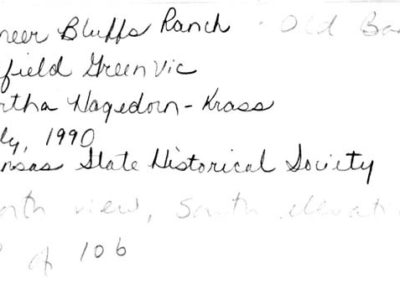 neer Bluffs Ranch - Old Ba
field Green Vic
rtha Hagedorn-Krass
ly, 1990
nsas State Historical Society
orth view, South elevat
of 106